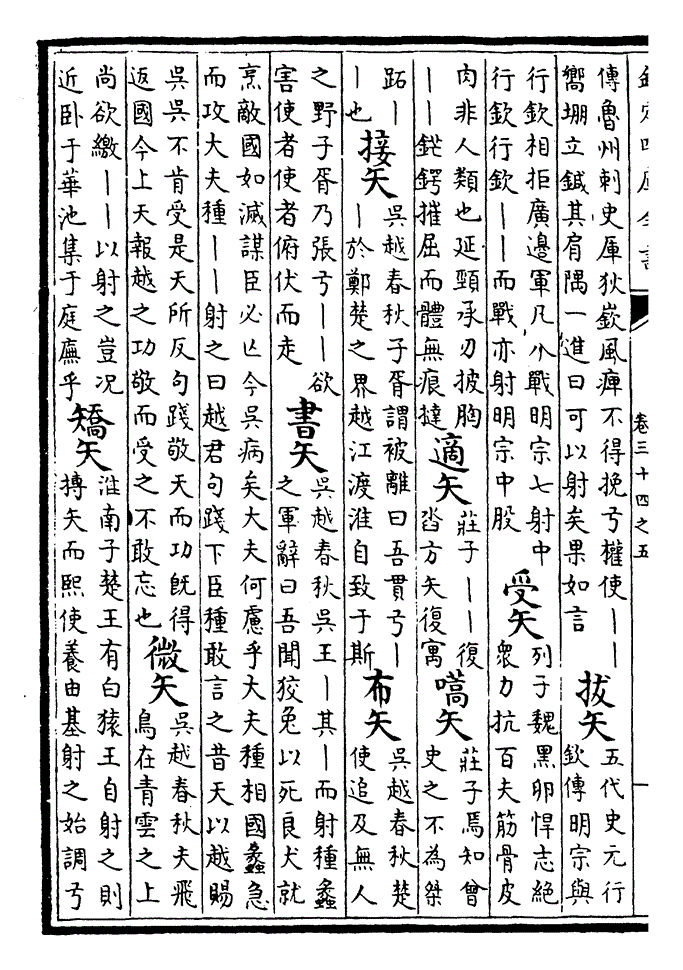 欽定四庫全書
卷三十四之五
傳魯州刺史厙狄嶔風痺不得挽弓權使丨丨
嚮堋立鍼其肩隅一進曰可以射矣果如言
拔矢
五代史元行
欽傳明宗與
行欽相拒廣邊軍凡八戰明宗七射中
行欽行欽丨丨而戰亦射明宗中股
受矢
列子魏黑卵悍志絕
衆力抗百夫筋骨皮
肉非人類也延頸承刃披胸
丨丨鋩鍔摧屈而體無痕撻
適矢
莊子丨丨復
沓方矢復寓
嚆矢
莊子焉知曾
史之不為桀
跖丨
丨也
接矢
吳越春秋子胥謂被離曰吾貫弓丨
丨於鄭楚之界越江渡淮自致于斯
布矢
吳越春秋楚
使追及無人
之野子胥乃張弓丨丨欲
害使者使者俯伏而走
書矢
吳越春秋吳王丨其丨而射種蠡
之軍辭曰吾聞狡兔以死良犬就
烹敵國如滅謀臣必亡今吳病矣大夫何慮乎大夫種相國蠡急
而攻大夫種丨丨射之曰越君句踐下臣種敢言之昔天以越賜
吳吳不肯受是天所反句踐敬天而功既得
返國今上天報越之功敬而受之不敢忘也
微矢
吳越春秋夫飛
鳥在青雲之上
尚欲繳丨丨以射之豈况
近卧于華池集于庭廡乎
矯矢
淮南子楚王有白猿王自射之則
搏矢而熙使養由基射之始調弓